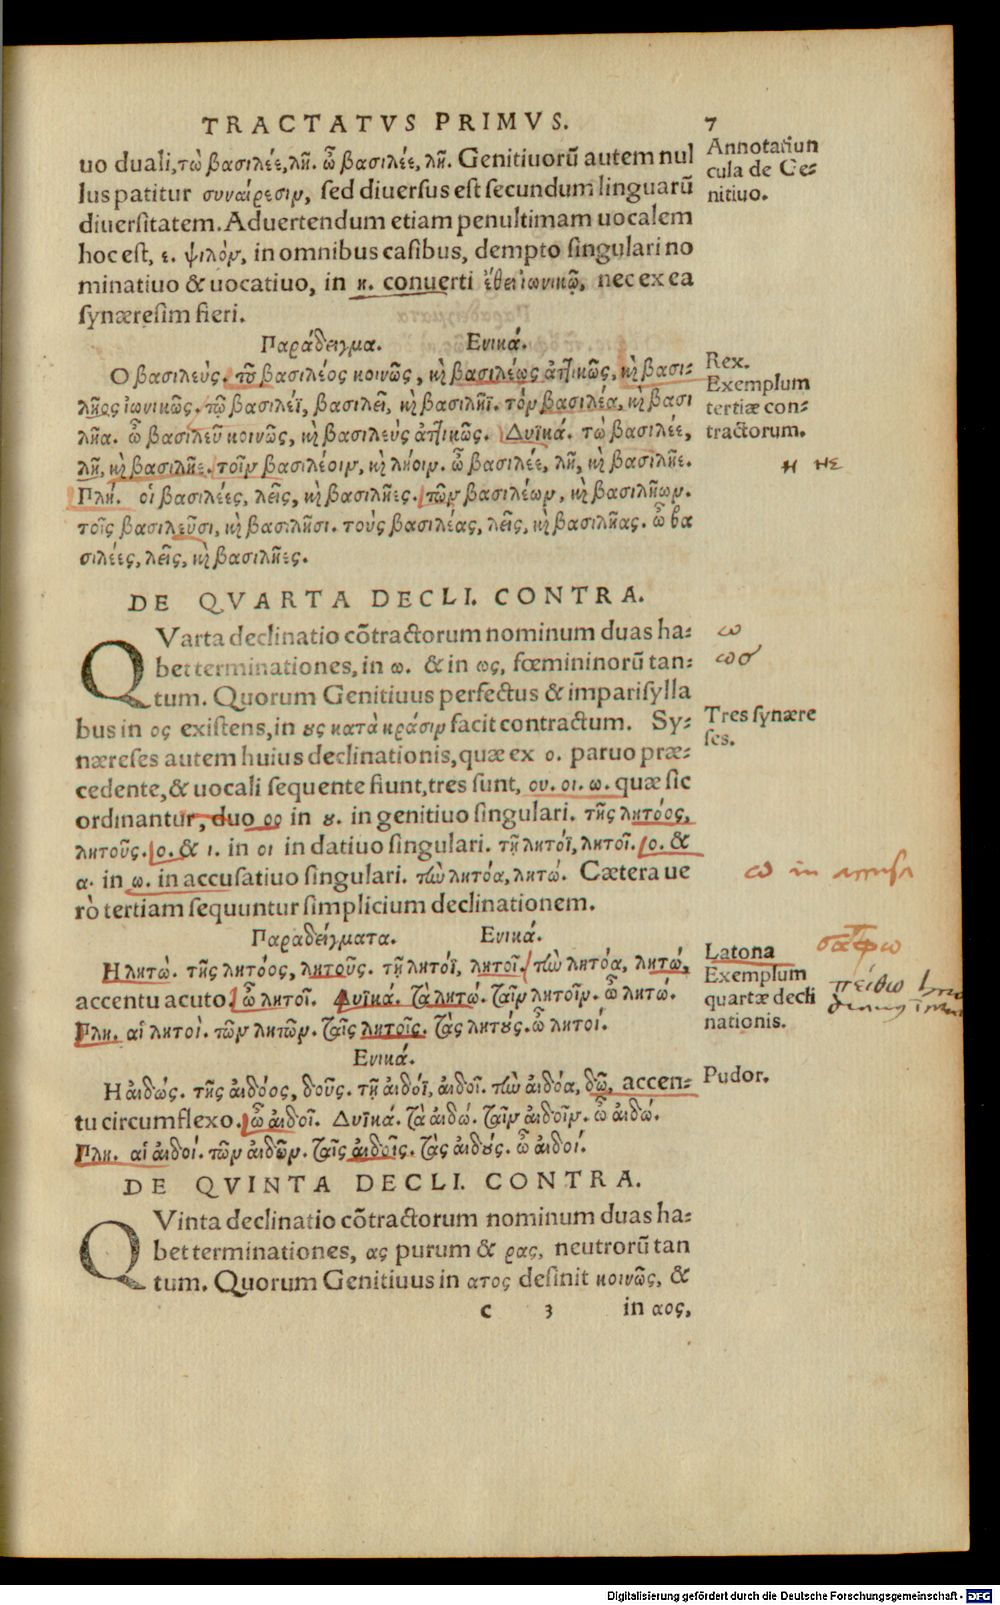 TRACTATVS PRIMVS. 7
uo duali, τὼ βασιλέε, λῆ. ὦ βασιλέε, λῆ. Genitiuorũ autem nul
lus patitur συναίρεσιν, sed diuersus est secundum linguarũ
diuersitatem. Aduertendum etiam penultimam uocalem
hoc est, ε. ψιλὸν, in omnibus casibus, dempto singulari no
minatiuo & uocatiuo, in η. conuerti ἔθει ἰωνικῷ, nec ex ea
synæresim fieri.
Annotatiun
cula de Ge⸗
nitiuo.
Παράδειγμα. Ενικά.
Ο βασιλεύς. τοῦ βασιλέος κοινῶς, κὶ βασιλέως ἀττικῶς, κὶ βασι⸗
λῆος ἰωνικῶς. τῷ βασιλέϊ, βασιλεῖ, κὶ βασιλῆϊ. τὸν βασιλέα, κὶ βασι
λῆα. ὦ βασιλεῦ κοινῶς, κὶ βασιλεὺς ἀττικῶς. Δυϊκά. τὼ βασιλέε,
λῆ, κὶ βασιλῆε. τοῖν βασιλέοιν, κὶ λήοιν. ὦ βασιλέε, λῆ, κὶ βασιλῆε.
Πλη. οἱ βασιλέες, λεῖς, κὶ βασιλῆες. τῶν βασιλέων, κὶ βασιλήων.
τοῖς βασιλεῦσι, κὶ βασιλῆσι. τοὺς βασιλέας, λεῖς, κὶ βασιλῆας. ὦ βα
σιλέες, λεῖς, κὶ βασιλῆες.
Rex.
Exemplum
tertiæ con⸗
tractorum.
η ης
DE QVARTA DECLI. CONTRA.
QVarta declinatio cõtractorum nominum duas ha⸗
bet terminationes, in ω. & in ως, fœmininorũ tan⸗
tum. Quorum Genitiuus perfectus & imparisylla
bus in ος existens, in ȣς κατὰ κρᾶσιν facit contractum. Sy⸗
næreses autem huius declinationis, quæ ex ο. paruo præ⸗
cedente, & uocali sequente fiunt, tres sunt, ου. οι. ω. quæ sic
ordinantur, duo οο in ȣ. in genitiuo singulari. τῆς λητόος,
λητοῦς. ο. & ι. in οι in datiuo singulari. τῇ λητόϊ, λητοῖ. ο. &
α. in ω. in accusatiuo singulari. τὼ λητόα, λητώ. Cætera ue
rò tertiam sequuntur simplicium declinationem.
ω
ωσ
Tres synære
ses.
ω in accusa
Παραδείγματα. Ενικά.
Η λητὼ. τῆς λητόος, λητοῦς. τῇ λητόϊ, λητοῖ. τὼ λητόα, λητώ,
accentu acuto. ὦ λητοῖ. Δυϊκά. τὰ λητώ. ταῖν λητοῖν. ὦ λητώ.
Πλη. αἱ λητοὶ. τῶν λητῶν. ταῖς λητοῖς. τὰς λητούς. ὦ λητοί.
Latona
Exemplum
quartæ decli
nationis.
σαπφω
πείθω
Ενικά.
Η αἰδώς. τῆς αἰδόος, δοῦς. τῇ αἰδόϊ, αἰδοῖ. τὼ αἰδόα, δῶ, accen⸗
tu circumflexo. ὦ αἰδοῖ. Δυϊκά. τὰ αἰδώ. ταῖν αἰδοῖν. ὦ αἰδώ.
Πλη. αἱ αἰδοί. τῶν αἰδῶν. ταῖς αἰδοῖς. τὰς αἰδούς. ὦ αἰδοί.
Pudor.
DE QVINTA DECLI. CONTRA.
QVinta declinatio cõtractorum nominum duas ha⸗
bet terminationes, ας purum & ρας, neutrorũ tan
tum. Quorum Genitiuus in ατος desinit κοινῶς, &
c 3 in αος,
Digitalisierung gefördert durch die Deutsche Forschungsgemeinschaft - DFG